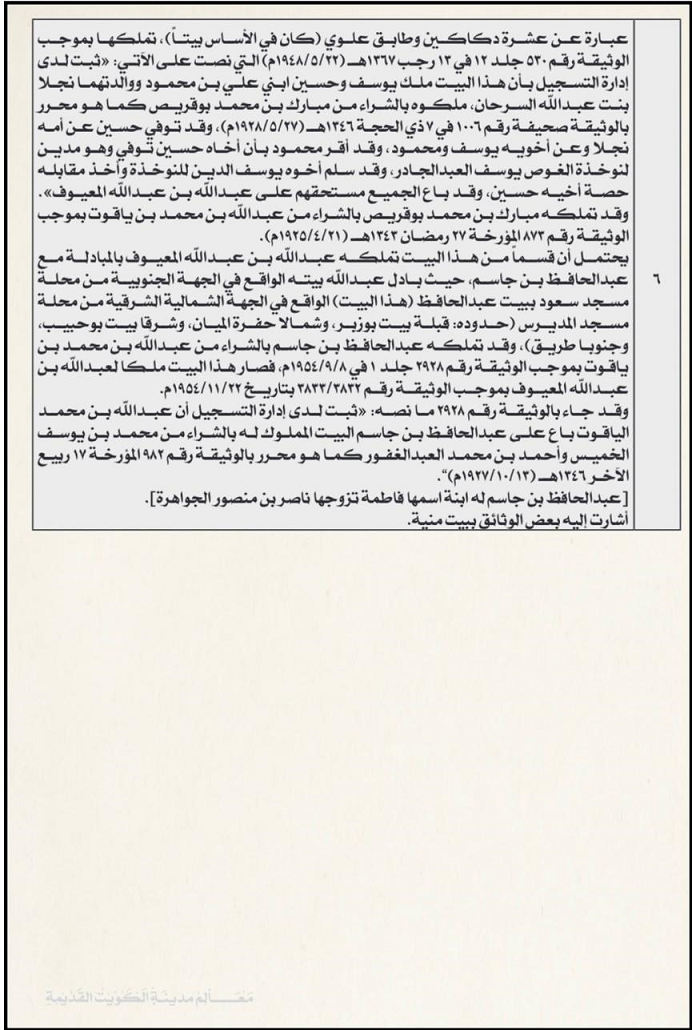 عبارة عن عشرة دكاكين وطابق علوي (كان في الأساس بيتاً)، تملكها بموجب
الوثيقة رقم ٥٣٠ جلد ١٢ في ١٣ رجب ١٣٦٧هـ (١٩٤٨/٥/٢٢م) التي نصت على الآتي: «ثبت لدى
إدارة التسجيل بأن هذا البيت ملك يوسف وحسين ابني علي بن محمود ووالدتهما نجلا
بنت عبدالله السرحان، ملكوه بالشراء من مبارك بن محمد بوقريص كما هو محرر
بالوثيقة صحيفة رقم ١٠٠٦ في ٧ ذي الحجة ١٣٤٦هـ (١٩٢٨/٥/٢٧م)، وقد توفي حسين عن أمه
نجلا وعن أخويه يوسف ومحمود، وقد أقر محمود بأن أخاه حسين توفي وهو مدين
لنوخذة الغوص يوسف العبدالجادر، وقد سلم أخوه يوسف الدين للنوخذة وأخذ مقابله
حصة أخيه حسين، وقد باع الجميع مستحقهم على عبدالله بن عبدالله المعيوف».
وقد تملكه مبارك بن محمد بوقريص بالشراء من عبدالله بن محمد بن ياقوت بموجب
الوثيقة رقم ٨٧٣ المؤرخة ٢٧ رمضان ١٣٤٣هـ (١٩٢٥/٤/٢١م).
يحتمل أن قسماً من هذا البيت تملكه عبدالله بن عبدالله المعيوف بالمبادلة مع
٦ عبدالحافظ بن جاسم، حيث بادل عبدالله بيته الواقع في الجهة الجنوبية من محلة
مسجد سعود ببيت عبدالحافظ (هذا البيت) الواقع في الجهة الشمالية الشرقية من محلة
مسجد المديرس (حدوده: قبلة بيت بوزبر، وشمالا حفرة الميان، وشرقا بيت بوحبيب،
وجنوبا طريق)، وقد تملكه عبدالحافظ بن جاسم بالشراء من عبدالله بن محمد بن
ياقوت بموجب الوثيقة رقم ٢٩٢٨ جلد ١ في ١٩٥٤/٩/٨م، فصار هذا البيت ملكا لعبدالله بن
عبدالله المعيوف بموجب الوثيقة رقم ٣٨٣٣/٣٨٣٢ بتاريخ ١٩٥٤/١١/٢٢م.
وقد جاء بالوثيقة رقم ٢٩٢٨ ما نصه: «ثبت لدى إدارة التسجيل أن عبدالله بن محمد
الياقوت باع على عبدالحافظ بن جاسم البيت المملوك له بالشراء من محمد بن يوسف
الخميس وأحمد بن محمد العبدالغفور كما هو محرر بالوثيقة رقم ٩٨٢ المؤرخة ١٧ ربيع
الآخر ١٣٤٦هـ (١٩٢٧/١٠/١٣م)".
[عبدالحافظ بن جاسم له ابنة اسمها فاطمة تزوجها ناصر بن منصور الجواهرة].
أشارت إليه بعض الوثائق ببيت منية.
مَعَالم مدينة الكويت القديمة